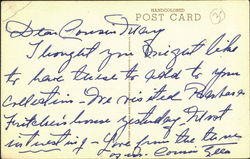 HANDCOLORED
POST CARD
Dear Cousin Mary
I thought you might like
to have these to add to your
collection - We visited Barbara
Fritchie's house yesterday. Most
interesting - Love from the
Cousin